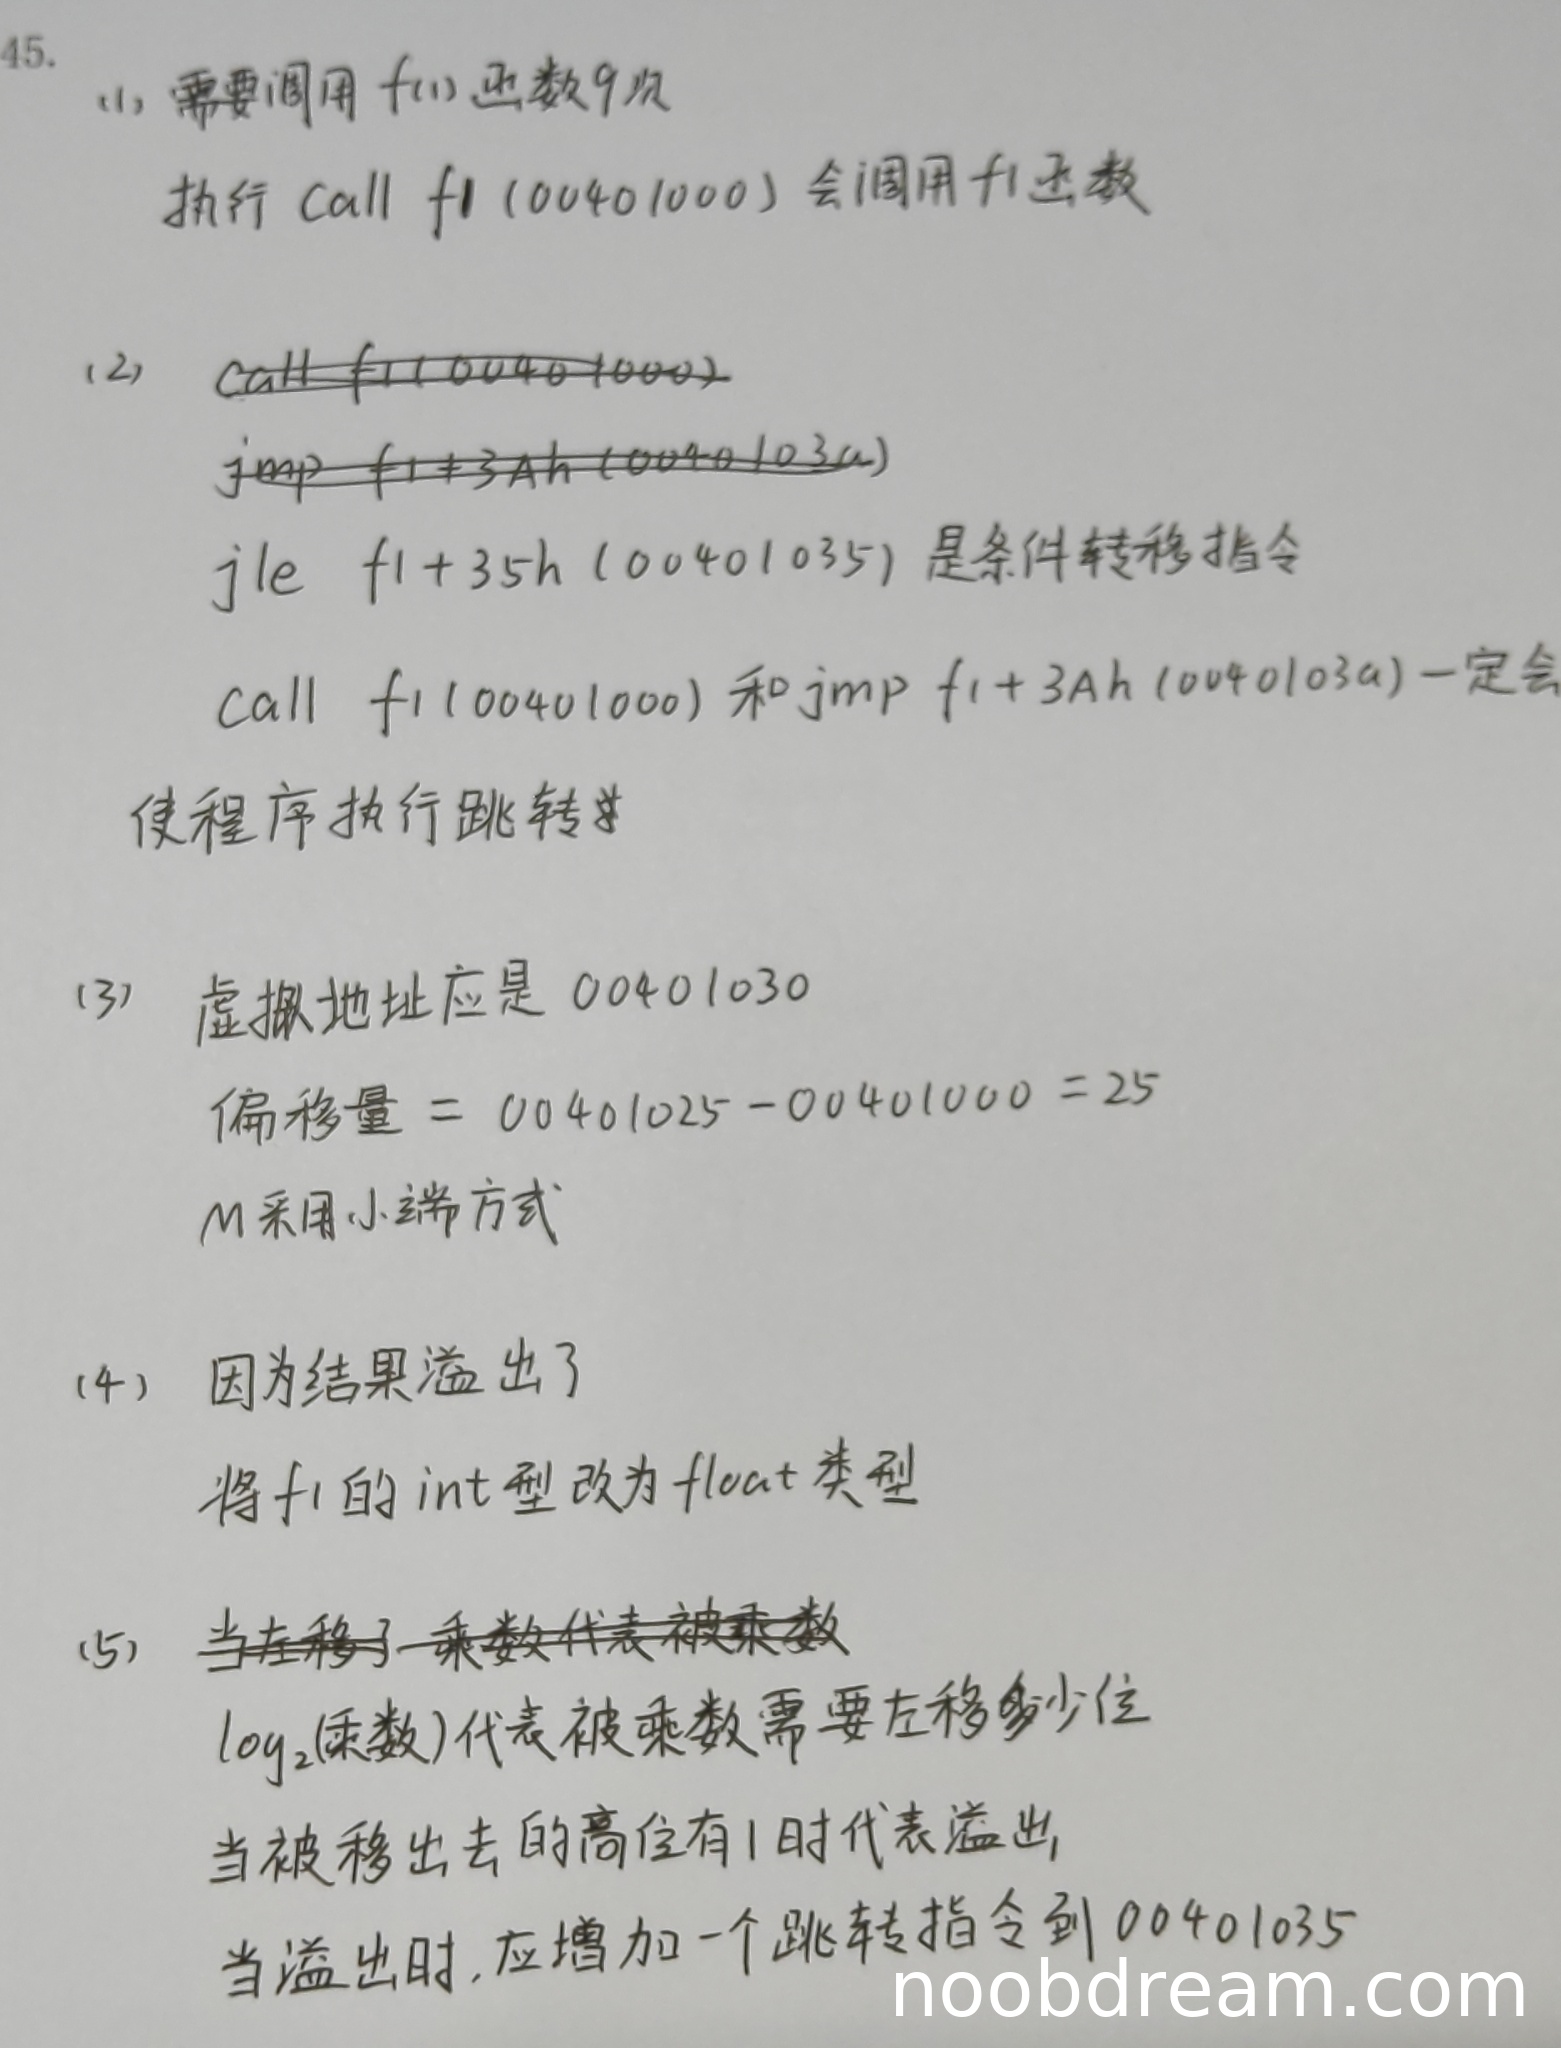 45.
(1) 需要调用 f(1) 函数9次
执行 call f1 (00401000) 会调用 f1 函数
(2) call f1 (00401000)
jmp f1+3Ah (0040103a)
jle f1+35h (00401035) 是条件转移指令
call f1 (00401000) 和 jmp f1+3Ah (0040103a) 一定会
使程序执行跳转
(3) 虚拟地址应是 00401030
偏移量 = 00401025-00401000 = 25
M采用小端方式
(4) 因为结果溢出了
将f1的int型改为float类型
(5) 当左移了 乘数代表被乘数
log₂(乘数)代表被乘数需要左移多少位
当被移出去的高位有1时代表溢出
当溢出时,应增加一个跳转指令到00401035
noobdream.com